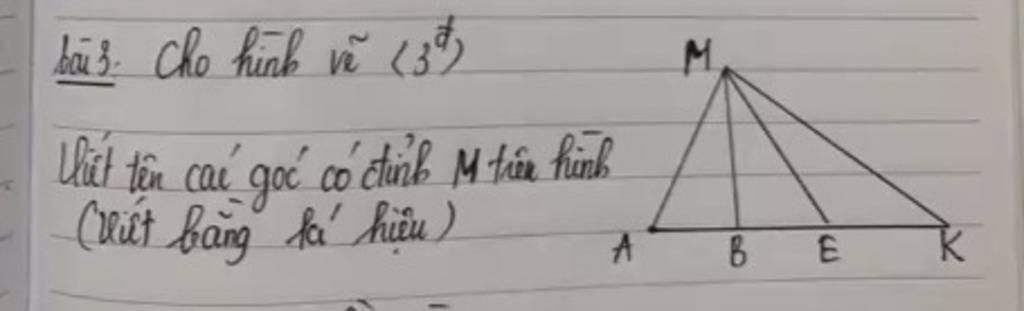 bài 3: Cho hình vẽ (3đ)
Viết tên các góc có đỉnh M trên hình
(Viết bằng kí hiệu)
M
A B E K